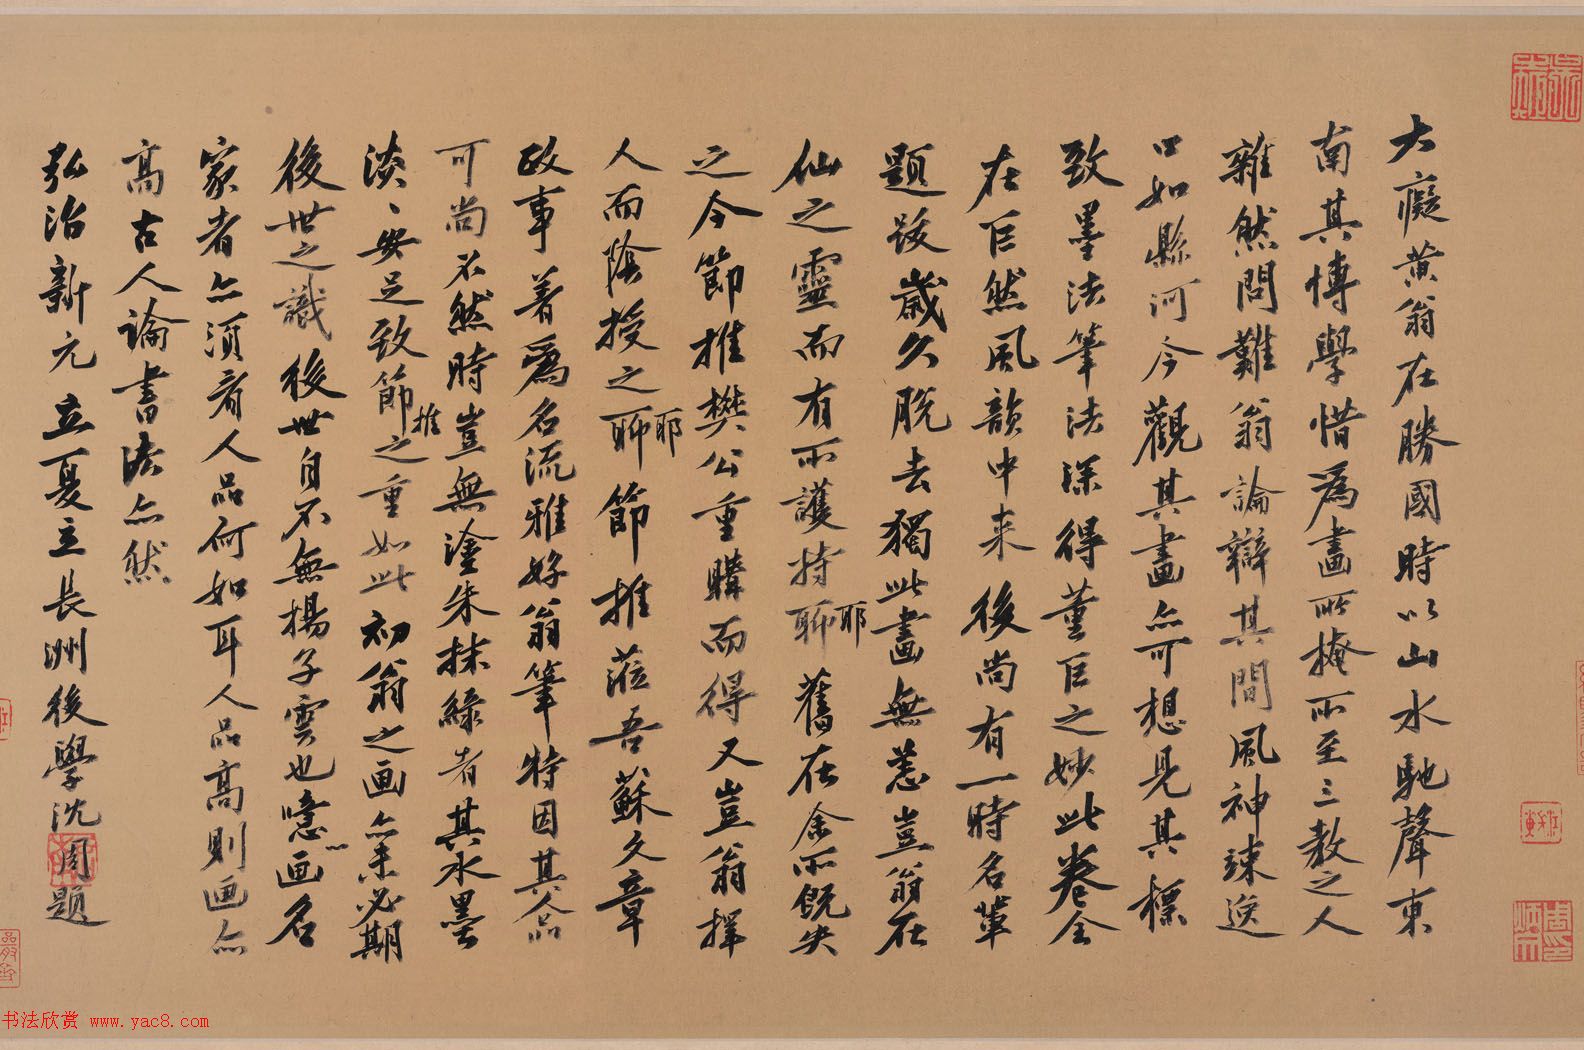 大癡黄翁在勝國時以山水馳聲東
南其博學惜為畫所掩所至三教之人
雜然問難翁論辯其間風神竦逸
口如縣河今觀其畫亦可想見其標
致墨法筆法深得董巨之妙此卷全
在巨然風韻中来後尚有一時名輩
題跋歲久脱去獨此畫無恙豈翁在
仙之靈而有所護持聊耶舊在余所既失
之今節推樊公重購而得又豈翁擇
人而陰授之聊耶節推蒞吾蘇文章
政事著為名流雅好翁筆特因其人品
可尚不然時豈無塗朱抹緑者其水墨
淡、安足致節推之重如此初翁之画亦未必期
後世之識後世自不無揚子雲也噫画名
家者亦須看人品何如耳人品高則画亦
高古人論書法亦然
弘治新元立夏立長洲後學沈周題
书法欣赏 www.yac8.com